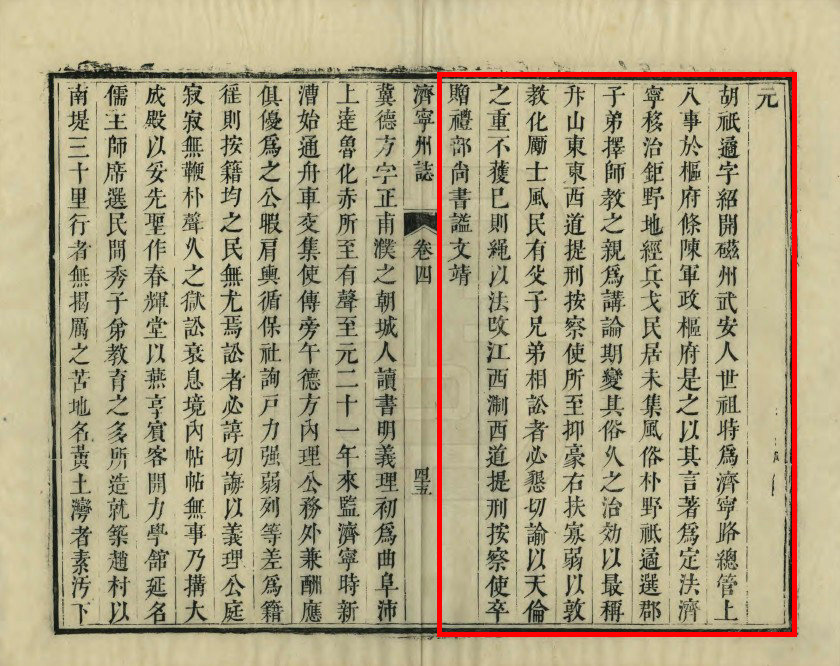 元
胡祇遹字紹開磁州武安人世祖時爲濟寧路總管上
八事於樞府條陳軍政樞府是之以其言著爲定法濟
寧移治鉅野地經兵戈民居未集風俗朴野祇遹選郡
子弟擇師教之親爲講論期變其俗久之治効以最稱
升山東東西道提刑按察使所至抑豪右扶寡弱以敦
教化勵士風民有父子兄弟相訟者必懇切諭以天倫
之重不獲已則繩以法改江西浙西道提刑按察使卒
贈禮部尚書謚文靖
濟寧州誌
卷四
四五
冀德方字正甫濮之朝城人讀書明義理初爲曲阜沛
上逹魯化赤所至有聲至元二十一年來監濟寧時新
漕始通舟車交集使傳旁午德方內理公務外兼酬應
俱優爲之公暇肩輿循保社詢戸力强弱列等差爲籍
徭則按籍均之民無尤焉訟者必諄切誨以義理公庭
寂寂無鞭朴聲久之獄訟衰息境內帖帖無事乃搆大
成殿以妥先聖作春輝堂以燕享賓客開力學館延名
儒主師席選民間秀子弟教育之多所造就築趙村以
南堤三十里行者無揭厲之苦地名黃土灣者素汚下